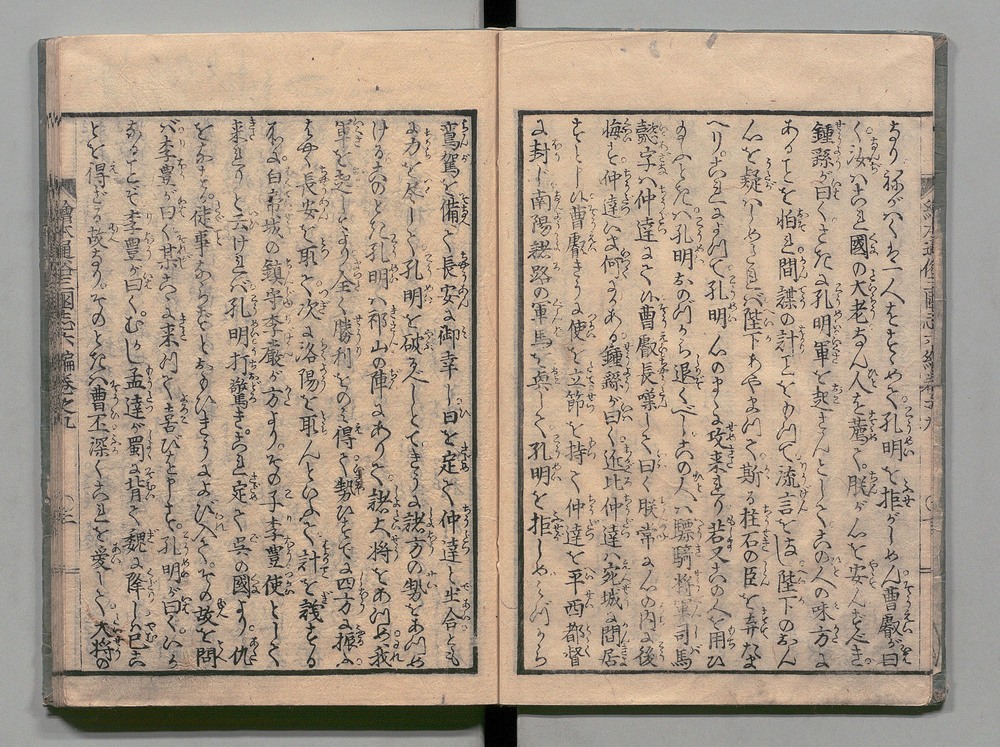 なり。ねがハくは一人をもとめて孔明を拒がしめん。曹叡が曰
く。汝ハこれ國の大老なり。人を薦て。朕が心を安んずべき。
鍾繇が曰く。さきに孔明軍を起さんとして。この人の味方に
あることを怕れ。間諜の計ことをめぐらして流言をなし。陛下の心
を疑ハしめたれバ。陛下あやまつて。斯る柱石の臣を弃たま
へり。これによつて孔明心のまゝに攻来れり。若又この人を用ひ
たまハヾ孔明おのづから退くべし。この人ハ驃騎將軍司馬
懿字ハ仲達にて候。曹叡長嘆して曰く。朕常に心の内に後
悔す。仲達いま何にかある。鍾繇が曰く。近比仲達ハ宛城に間居
すといふ。曹叡すなハち使を立。節を持て仲達を平西都督
に封じ。南陽諸路の軍馬を與して孔明を拒しめ。ミづから
鸞駕を備へて。長安に御幸し。日を定て仲達と出合ともに
に力を尽して孔明を破べしとて。さかんに諸方の勢をあつめ
ける。このとき孔明ハ祁山の陣にありて。諸大将をあつめ。我
軍を起してより全く勝利をのミ得て。勢ひすでに四方に振ふ
はやく長安を取て次に洛陽を取んといふて。計を議する
ところに白帝城の鎮守李嚴が方より。その子李豊使として
来れりと云けれバ。孔明打驚き。これ定て呉の國より。仇
をなせる。徒事ならずとおもひ。いそぎよびいれて。その故を問
バ。李豊が曰く。某こゝに来つて。喜びを申す。孔明が曰く。いか
なることぞ。李豊が曰く。むかし孟達が蜀に背て。魏に降しハ。已こ
とを得ざる故なり。そのとき曹丕深くこれを愛して。大将の
繪本通俗三國志六編巻之九